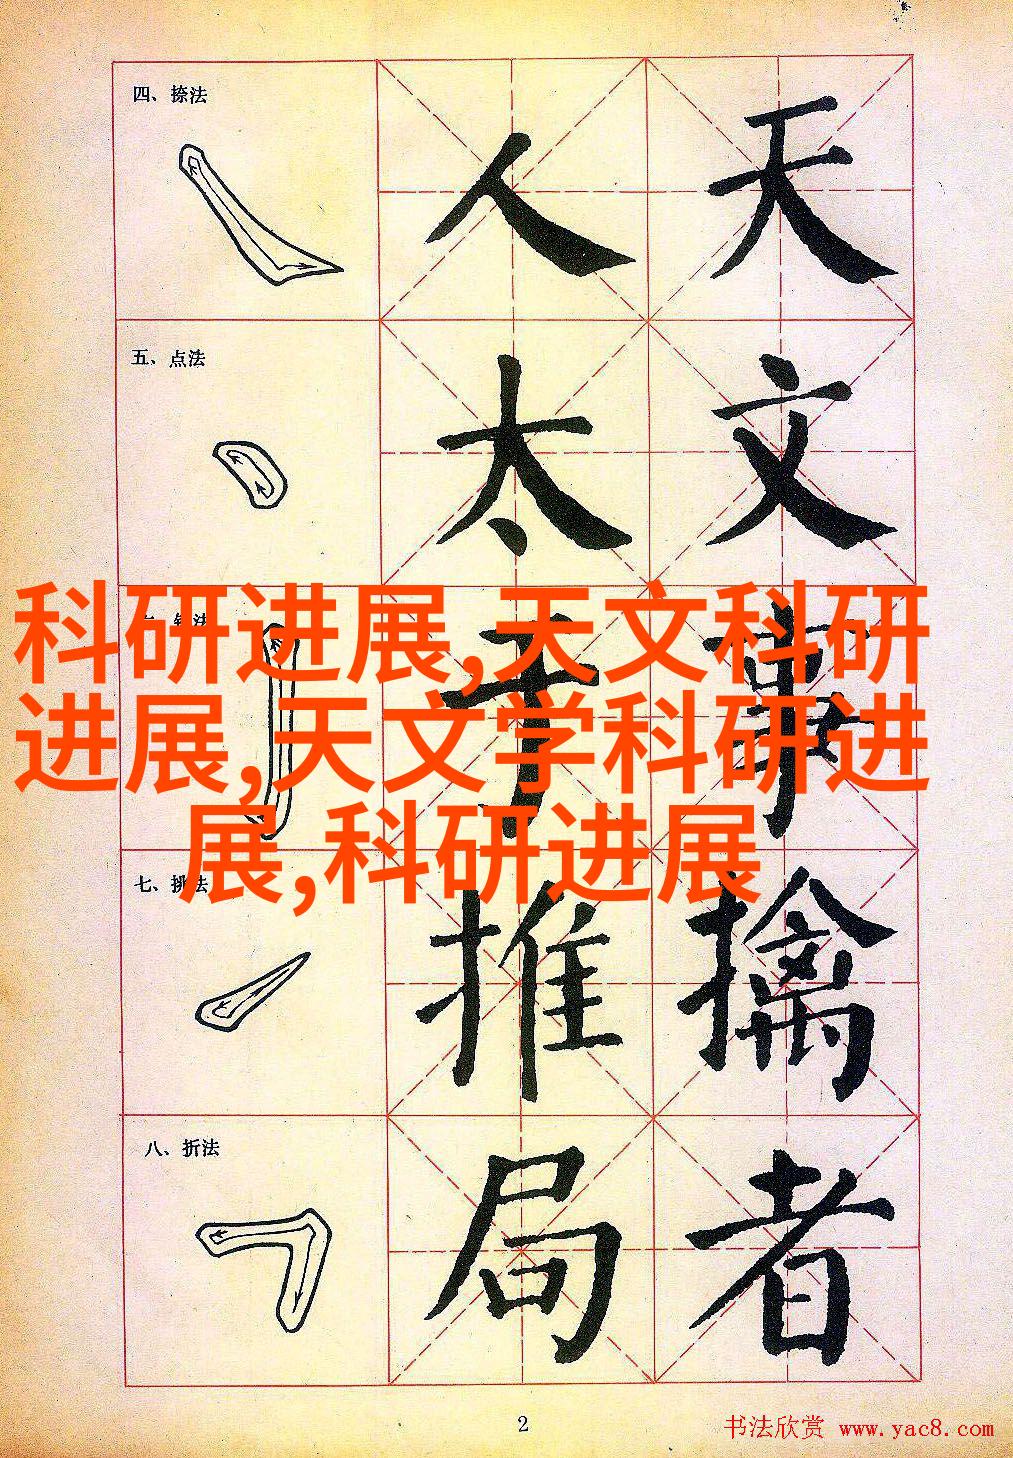 四、捺法
人 天
五、点法
太 文
科研进展,天文科研
进展,天文学科研进
展,科研进展
于 事
七、挑法
推 擒
八、折法
局 者
2
书法欣赏 www.yac8.com